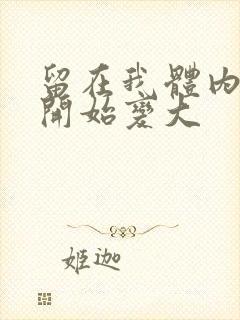 留在我體內
開始變大
姬迦